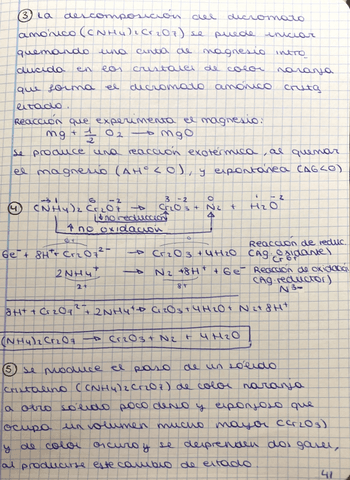 ③ La descomposición del dicromato
amónico ((NH4)2Cr2O7) se puede iniciar
quemando una cinta de magnesio intro
ducida en los cristales de color naranja
que forma el dicromato amónico crista
lizado.
Reacción que experimenta el magnesio:
Mg + 1/2 O2 → MgO
Se produce una reacción exotérmica, al quemar
el magnesio (ΔHº<0), y espontánea (ΔG<0)
④ (NH4)2 Cr2O7 → Cr2O3 + N2 + H2O
nº reducción
nº oxidación
6e- + 8H+ + Cr2O7 2- → Cr2O3 + 4H2O Reacción de reduc.
(Ag. oxidante)
2NH4+ → N2 + 8H+ + 6e- Reacción de oxidación
(Ag. reductor)
N3-
8H+ + Cr2O7 2- + 2NH4+ → Cr2O3 + 4H2O + N2 + 8H+
(NH4)2Cr2O7 → Cr2O3 + N2 + 4H2O
⑤ Se produce el paso de un sólido
cristalino ((NH4)2Cr2O7) de color naranja
a otro sólido poco denso y esponjoso que
ocupa un volumen mucho mayor (Cr2O3)
y de color oscuro y se desprenden dos gases,
al producirse este cambio de estado.
41